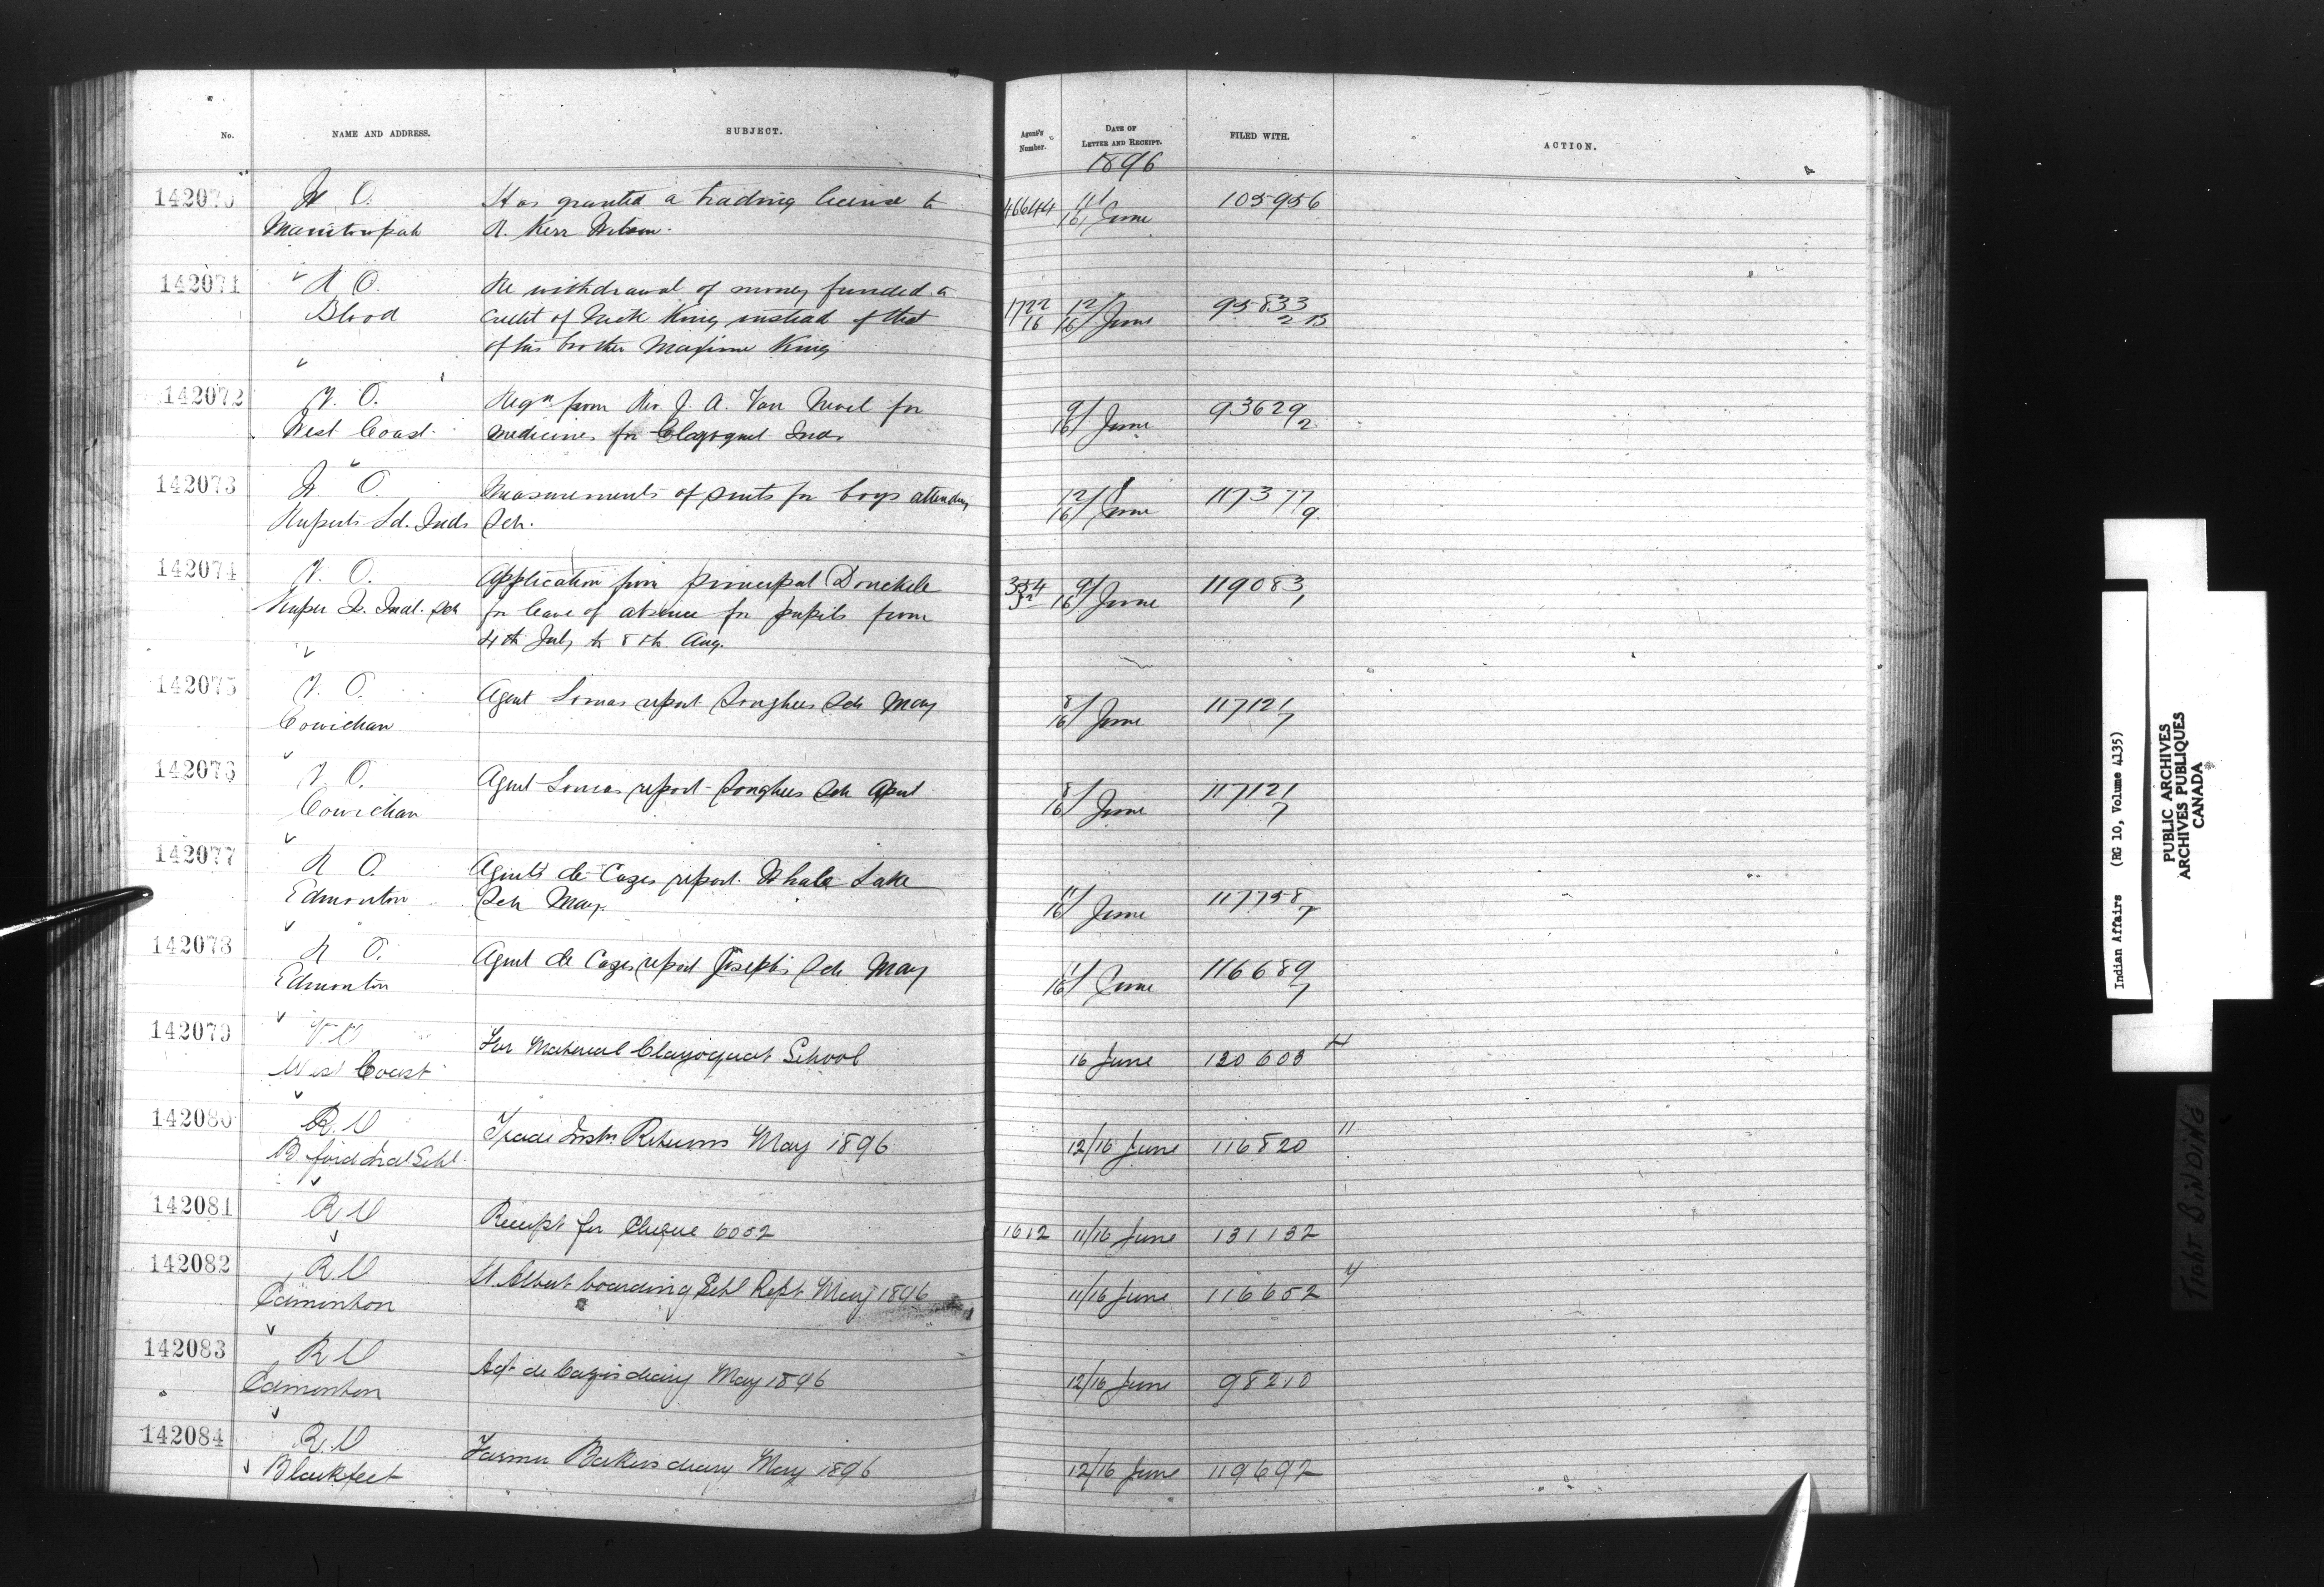 No. NAME AND ADDRESS. SUBJECT. Agent's Number. DATE OF LETTER AND RECEIPT. FILED WITH. ACTION.
1896
142070 O. Has granted a trading license to 46644 11/16 June 105956
R. Kerr Wilson.
142071 R O. Re withdrawal of money funded to
Blood credit of Nick King instead of that 1722/16 12/16 June 95833 2 B
of his brother Maxime King
142072 V. O. Reqn from Rev. J. A. Van Nevel for 9/16 June 93629 2
West Coast. medicines for Clayoquot Inds
142073 O. Measurements of suits for boys attending 12/16 June 117377 9
Ruperts Ld. Inds Sch.
142074 V. O. Application from principal Donckele 9/16 June 119083 1
Kuper I. Indl. Sch for leave of absence for pupils from
4th July to 8th Aug.
142075 V. O. Agent Lomas report Songhees Sch May 8/16 June 117121 7
Cowichan
142076 V. O. Agent Lomas report Songhees Sch April 8/16 June 117121 7
Cowichan
142077 R O. Agent de Cazes report Whale Lake
Edmonton Sch May. 11/16 June 117758 7
142078 R O. Agent de Cazes report Joseph's Sch May 11/16 June 116689 7
Edmonton
142079 V O For Material Clayoquot School 16 June 130603
West Coast
142080 R.O Trade Instr Returns May 1896 12/16 June 116820 11
B'ford Ind Schl.
142081 R O Receipt for Cheque 6052 1612 11/16 June 131132
142082 R O St. Albert boarding Schl Rept May 1896 11/16 June 116652
Edmonton
142083 R O Agt de Cazes diary May 1896 12/16 June 98210
Edmonton
142084 R.O Farmer Bakers diary May 1896 12/16 June 119692
Blackfeet
Indian Affairs (RG 10, Volume 4135)
PUBLIC ARCHIVES
ARCHIVES PUBLIQUES
CANADA
TIGHT BINDING